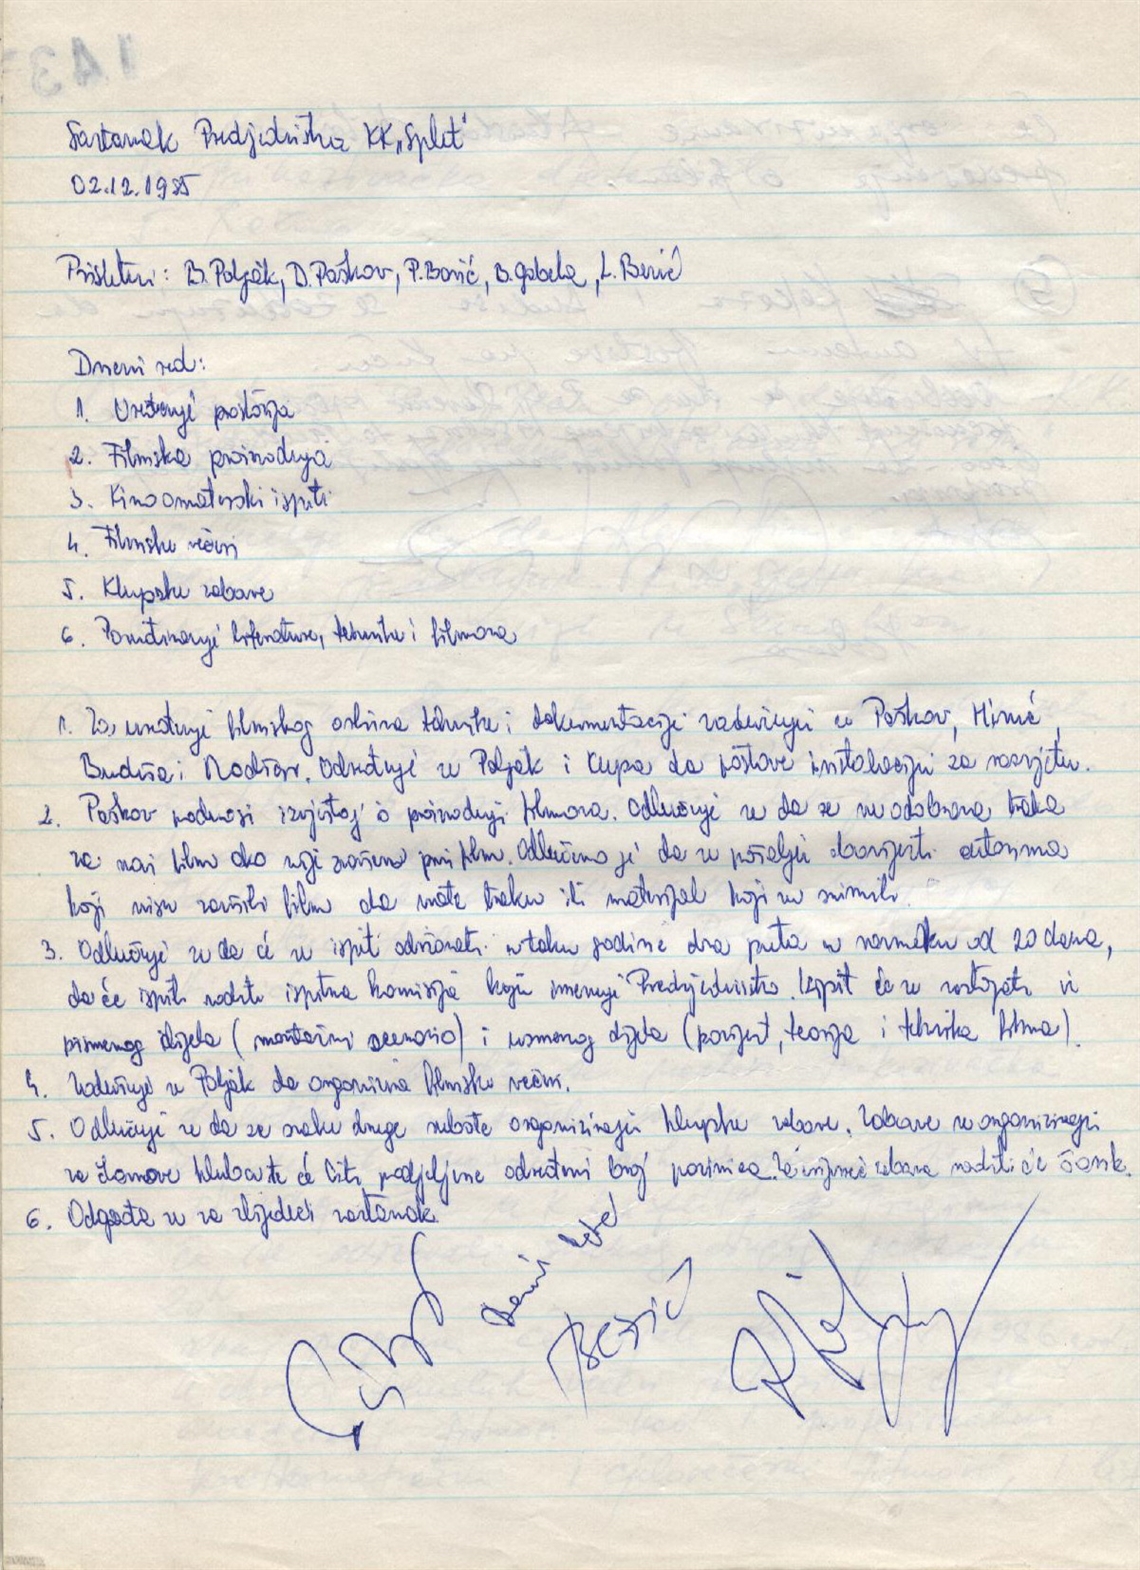 Sastanak Predsjedništva KK „Split"
02.12.1985
Prisutni: B. Poljak, D. Paškov, P. Borić, B. Gabela, L. Berić
Dnevni red:
1. Uređenje prostorija
2. Filmska proizvodnja
3. Kinoamaterski ispiti
4. Filmske večeri
5. Klupske zabave
6. literature, tehnike i filmova
1. Za uređenje filmskog arhiva tehnike i dokumentacije zadužuju se Paškov, Mimić,
Budiša i Određuje se Poljak i da postave instalaciju za rasvjetu.
2. Paškov podnosi izvještaj o proizvodnji filmova. Odlučuje se da se ne odobrava traka
za novi film ako nije završen prvi film. Odlučeno je da se pošalju obavijesti autorima
koji nisu završili film da vrate traku ili materijal koji su snimili.
3. Odlučuje se da će se ispiti održavati u toku godine dva puta u razmaku od 20 dana,
da će ispite vodit ispitna komisija koju imenuje Predsjedništvo. Ispit će se sastojati iz
pismenog dijela (montažni scenario) i usmenog dijela (povijest, teorija i tehnika filma).
4. Zadužuje se Poljak da organizira filmske večeri.
5. Odlučuje se da se svake druge subote organiziraju klupske zabave. Zabave se organiziraju
za članove kluba te će biti podjeljene određeni broj pozivnica. Za vrijeme zabava radit će šank.
6. Odgađa se za slijedeći sastanak.